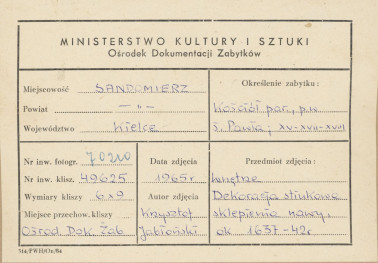 MINISTERSTWO KULTURY I SZTUKI
Ośrodek Dokumentacji Zabytków
Miejscowość SANDOMIERZ
Powiat —„—
Województwo Kielce
Określenie zabytku:
Kościół par., p.w.
ś. Pawła; XV-XVII-XVIII
Nr inw. fotogr. 70210
Nr inw. klisz. 49625
Wymiary kliszy 6x9
Miejsce przechow. kliszy
Ośrod. Dok. Zab
Data zdjęcia
1965 r
Autor zdjęcia
Krzysztof
Jabłoński
Przedmiot zdjęcia:
wnętrze
Dekoracja stiukowa
sklepienia nawy,
ok 1637-42r.